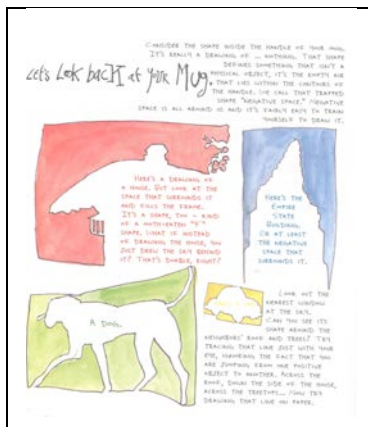 CONSIDER THE SHAPE INSIDE THE HANDLE OF YOUR MUG.
IT'S REALLY A DRAWING OF ... NOTHING. THAT SHAPE
DEFINES SOMETHING THAT ISN'T A
PHYSICAL OBJECT, IT'S THE EMPTY AIR
THAT LIES WITHIN THE CONTOURS OF
THE HANDLE. WE CALL THAT TRAPPED
SHAPE "NEGATIVE SPACE." NEGATIVE
SPACE IS ALL AROUND US AND IT'S FAIRLY EASY TO TRAIN
YOURSELF TO DRAW IT.
Let's Look back at your Mug.
HERE'S A DRAWING OF
A HOUSE. BUT LOOK AT THE
SPACE THAT SURROUNDS IT
AND FILLS THE FRAME.
IT'S A SHAPE, TOO – KIND
OF A MOTH-EATEN "F"
SHAPE. WHAT IF INSTEAD
OF DRAWING THE HOUSE, YOU
JUST DREW THE SKY BEHIND
IT? THAT'S DOABLE, RIGHT?
HERE'S THE
EMPIRE
STATE
BUILDING.
OR AT LEAST
THE NEGATIVE
SPACE THAT
SURROUNDS IT.
A DOG.
LOOK OUT THE
NEAREST WINDOW
AT THE SKY.
CAN YOU SEE ITS
SHAPE AROUND THE
NEIGHBORS' ROOF AND TREES? TRY
TRACING THAT LINE JUST WITH YOUR
EYE, IGNORING THE FACT THAT YOU
ARE JUMPING FROM ONE POSITIVE
OBJECT TO ANOTHER. ACROSS THE
ROOF, DOWN THE SIDE OF THE HOUSE,
ACROSS THE TREETOPS... NOW TRY
DRAWING THAT LINE ON PAPER.